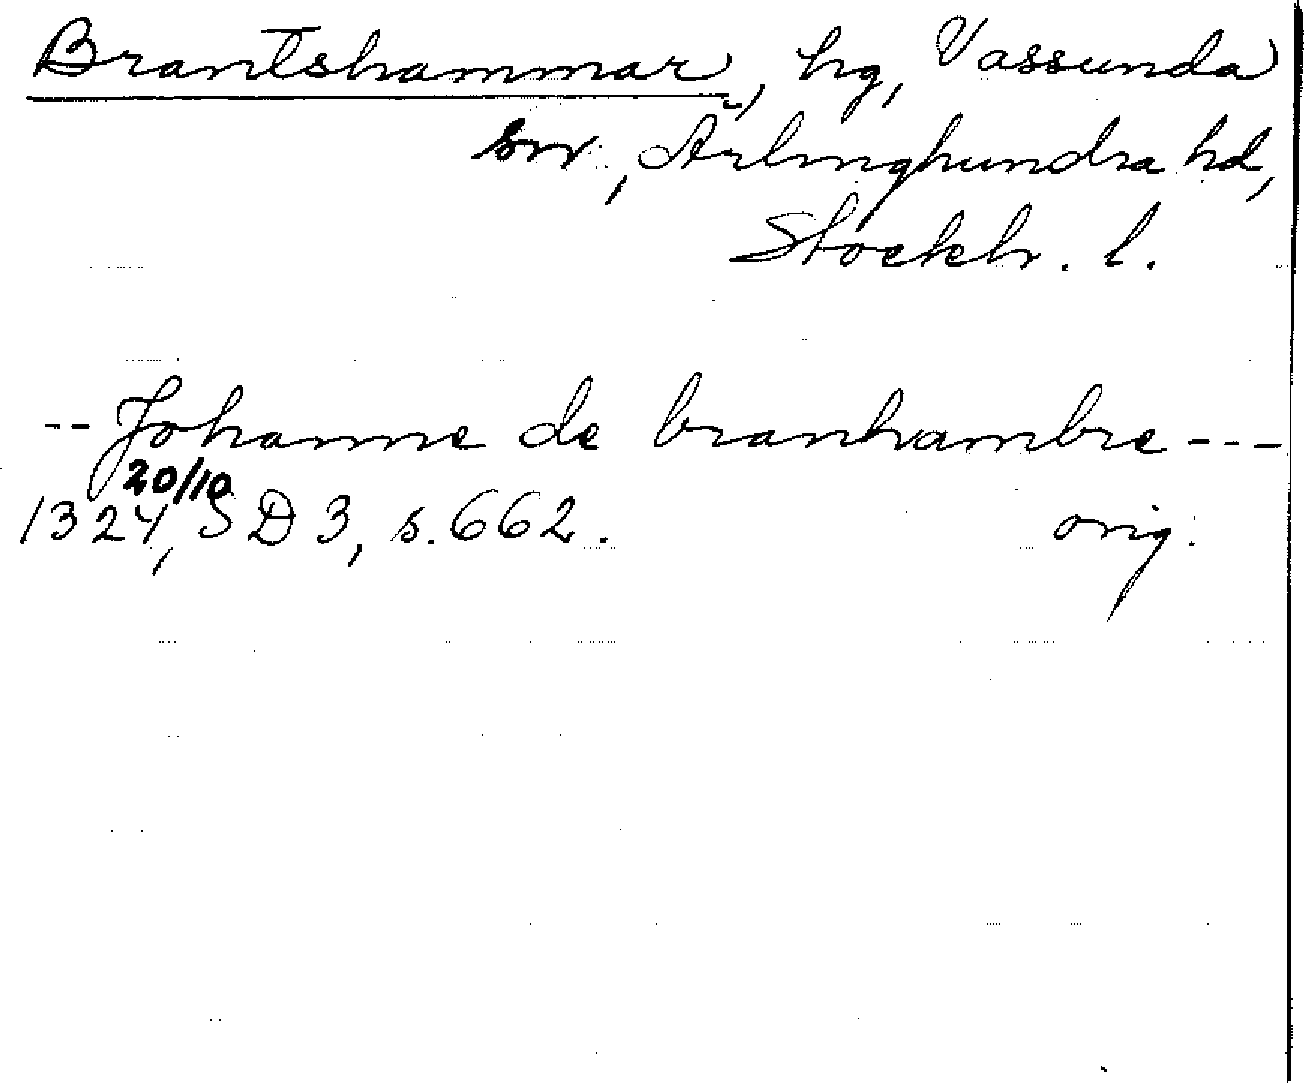 Brantshammar, hg, Vassunda
sn, Ärlinghundra hd,
Stockh. l.
-- Johanne de branhambre ---
20/10
1324, SD 3, s. 662. orig.